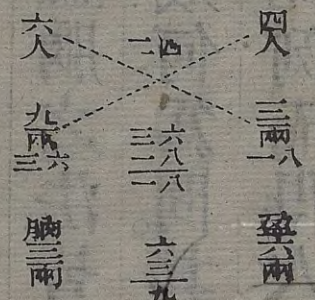 四人
三兩
一八
盈六兩
二四
三六
二八
一八
六
三
九
六人
九兩
三六
朒三兩